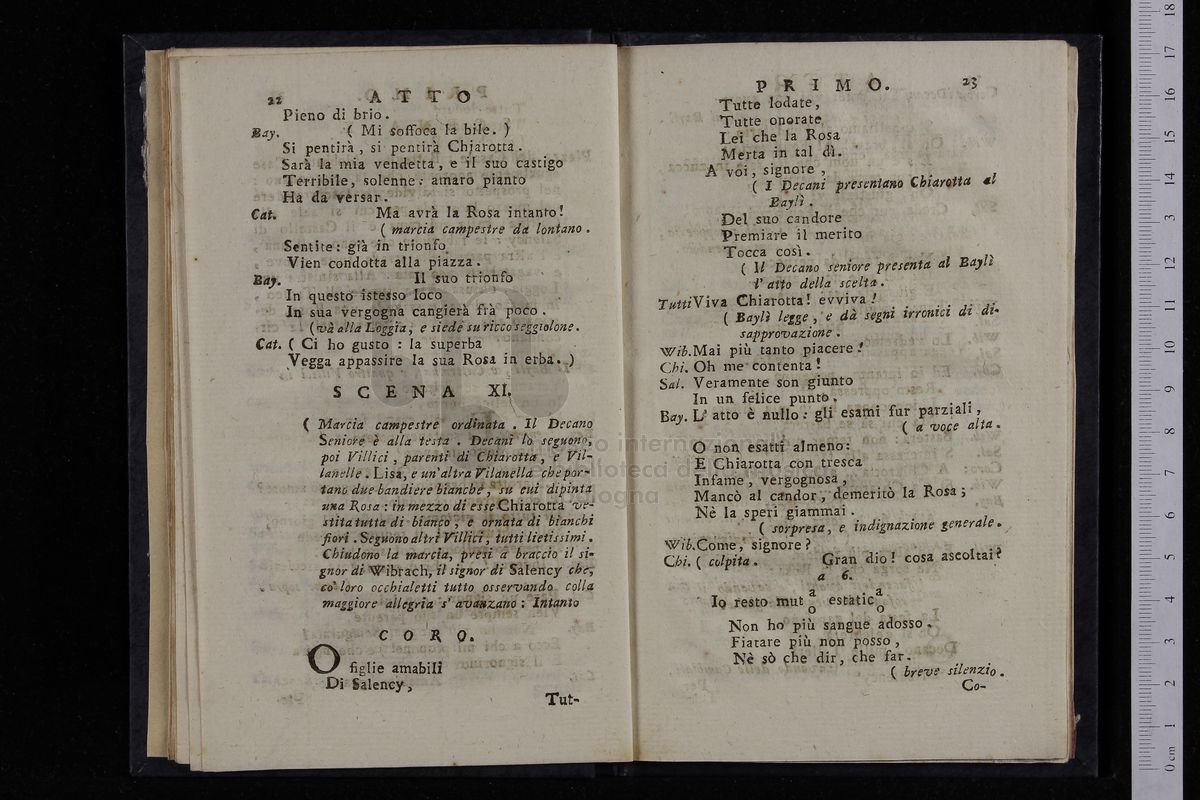 22 ATTO
Pieno di brio.
Bay. ( Mi soffoca la bile. )
Si pentirà, si pentirà Chiarotta.
Sarà la mia vendetta, e il suo castigo
Terribile, solenne: amaro pianto
Ha da versar.
Cat. Ma avrà la Rosa intanto!
( marcia campestre da lontano.
Sentite: già in trionfo
Vien condotta alla piazza.
Bay. Il suo trionfo
In questo istesso loco
In sua vergogna cangierà frà poco.
( và alla Loggia, e siede su ricco seggiolone.
Cat. ( Ci ho gusto : la superba
Vegga appassire la sua Rosa in erba. )
SCENA XI.
( Marcia campestre ordinata. Il Decano
Seniore è alla testa. Decani lo seguono,
poi Villici, parenti di Chiarotta, e Vil-
lanelle. Lisa, e un'altra Vilanella che por-
tano due bandiere bianche, su cui dipinta
una Rosa: in mezzo di esse Chiarotta ve-
stita tutta di bianco, e ornata di bianchi
fiori. Seguono altri Villici, tutti lietissimi.
Chiudono la marcia, presi a braccio il si-
gnor di Wibrach, il signor di Salency che,
co' loro occhialetti tutto osservando colla
maggiore allegria s' avanzano: Intanto
CORO.
O figlie amabili
Di Salency,
Tut-
PRIMO. 23
Tutte lodate,
Tutte onorate
Lei che la Rosa
Merta in tal dì.
A voi, signore,
( I Decani presentano Chiarotta al
Baylì.
Del suo candore
Premiare il merito
Tocca così.
( Il Decano seniore presenta al Baylì
l' atto della scelta.
Tutti Viva Chiarotta! evviva!
( Baylì legge, e dà segni irronici di di-
sapprovazione.
Wib. Mai più tanto piacere!
Chi. Oh me contenta!
Sal. Veramente son giunto
In un felice punto.
Bay. L' atto è nullo: gli esami fur parziali,
( a voce alta.
O non esatti almeno:
E Chiarotta con tresca
Infame, vergognosa,
Mancò al candor, demeritò la Rosa;
Nè la speri giammai.
( sorpresa, e indignazione generale.
Wib. Come, signore?
Chi. ( colpita. Gran dio! cosa ascoltai?
a 6.
a a
Io resto mut estatic
o o
Non ho più sangue adosso.
Fiatare più non posso,
Nè sò che dir, che far.
( breve silenzio.
Co-
0 cm 1 2 3 4 5 6 7 8 9 10 11 12 13 14 15 16 17 18